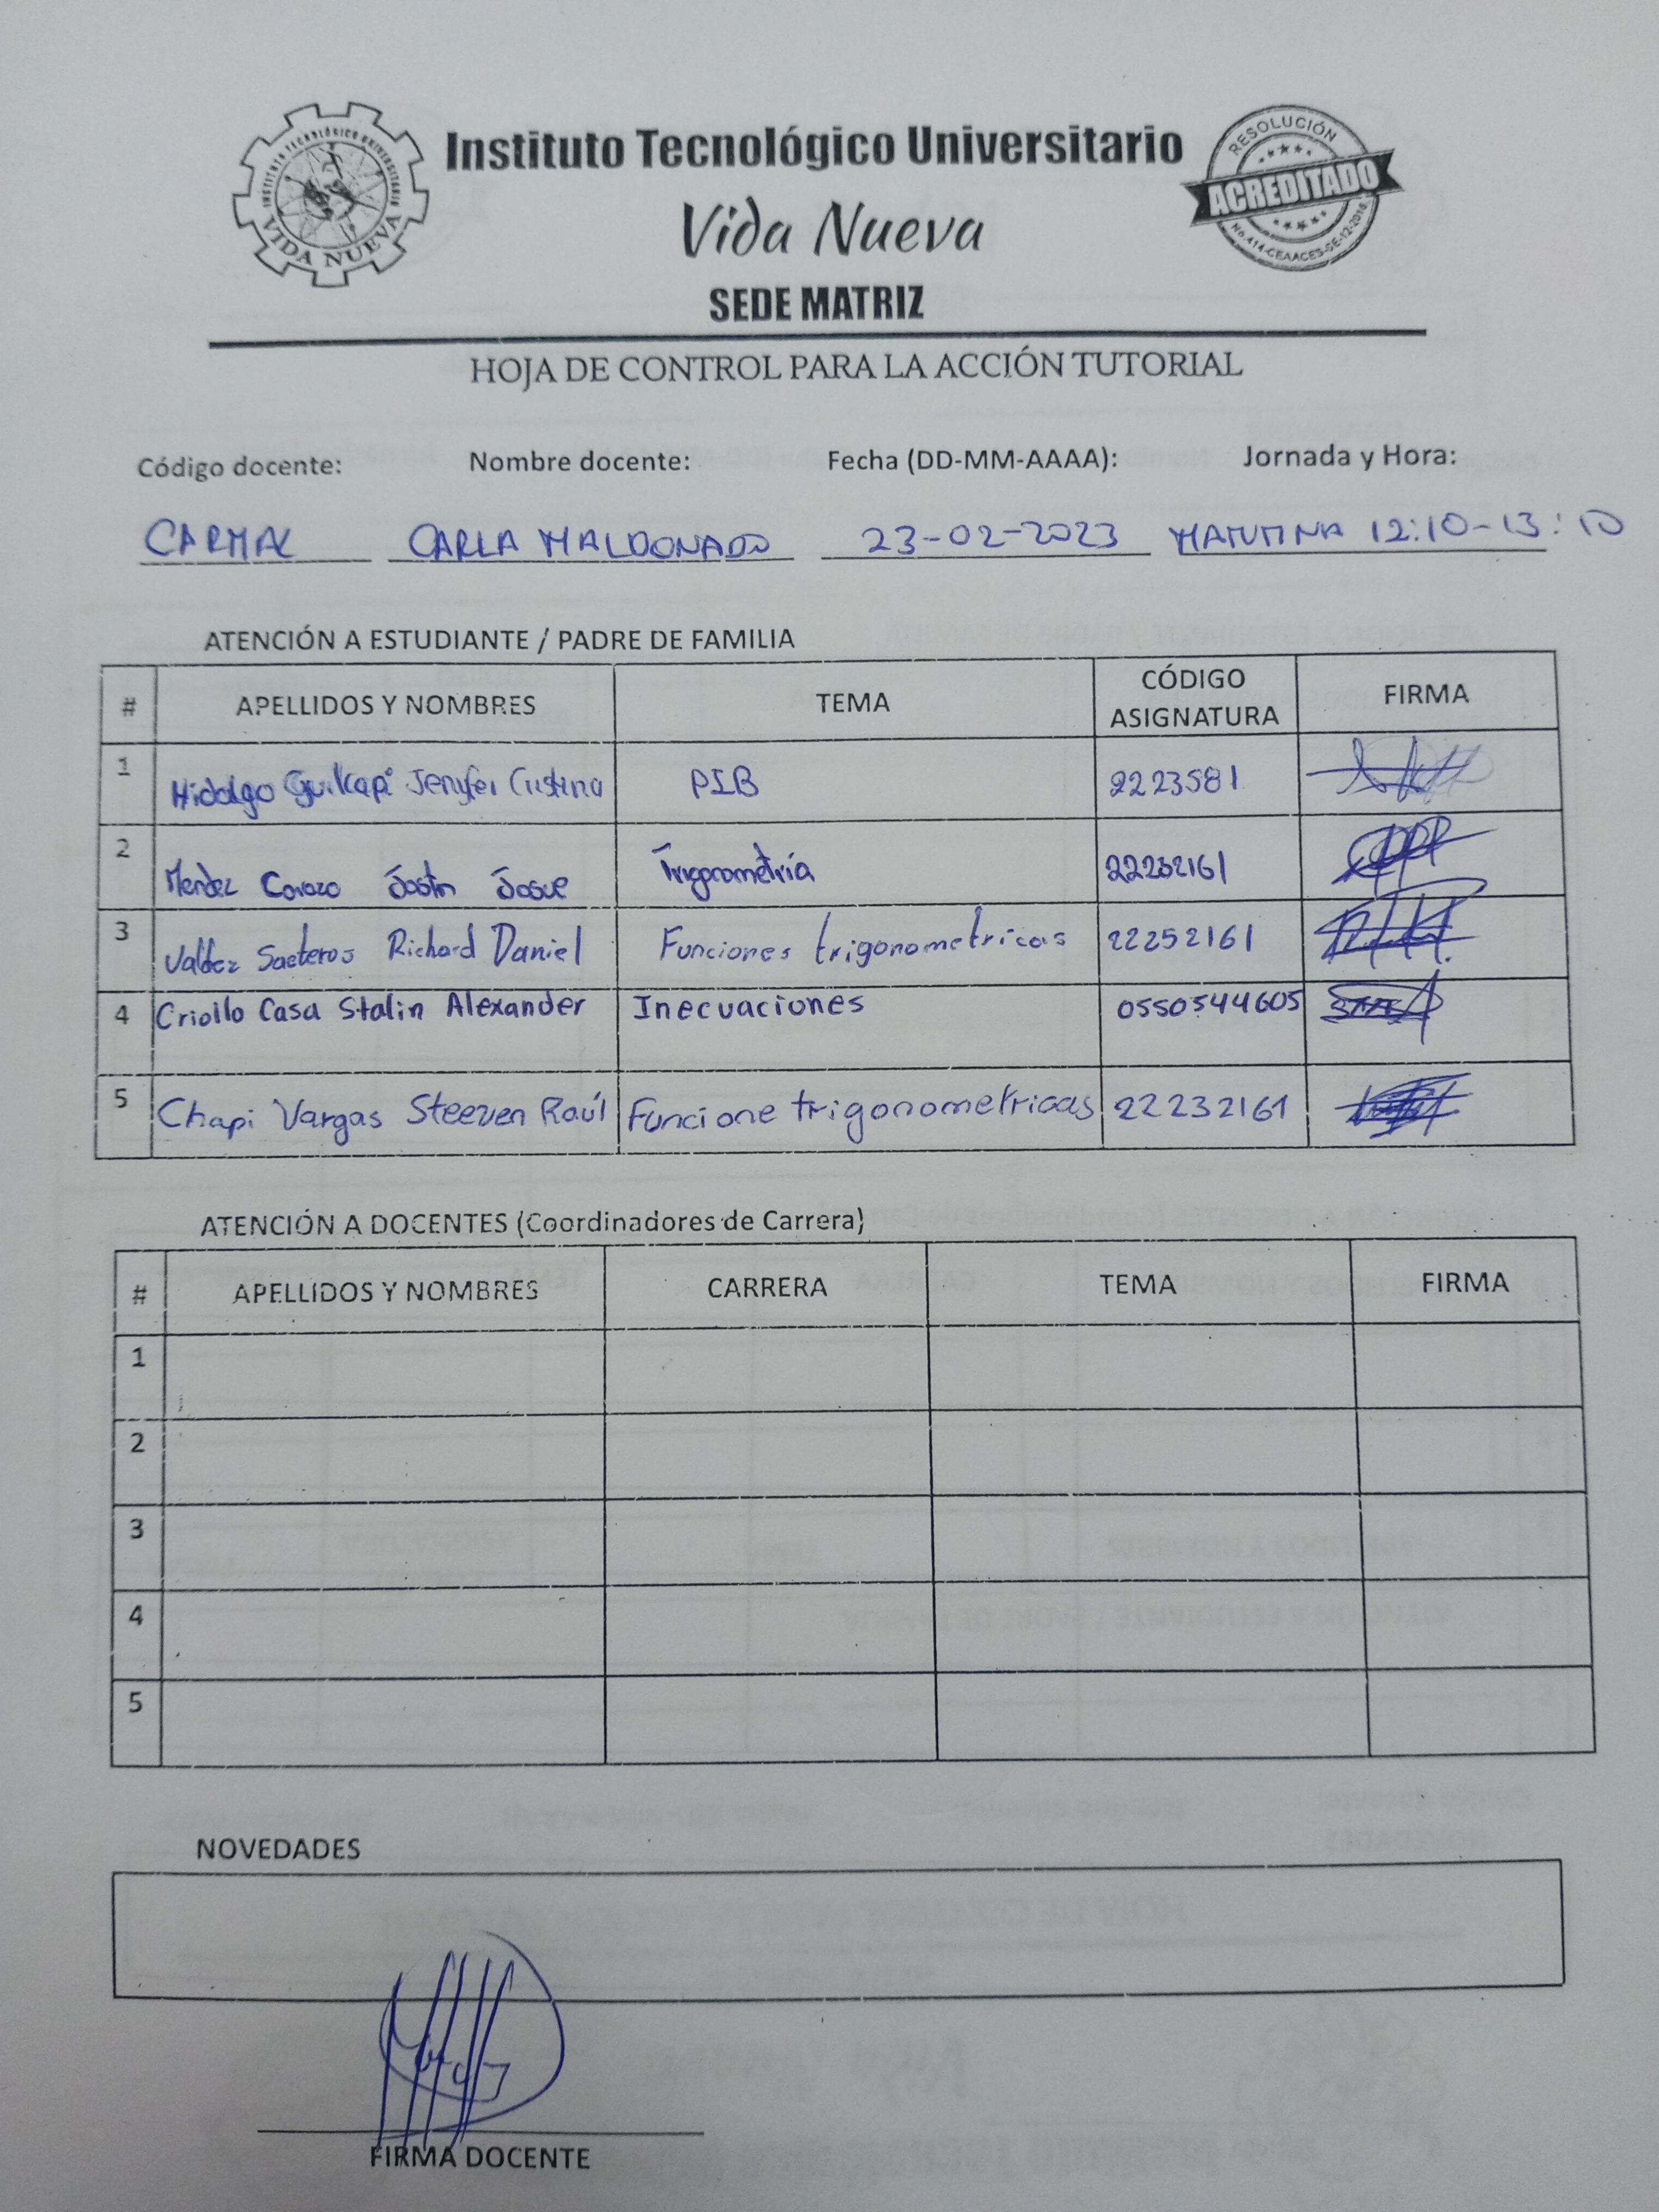 INSTITUTO TECNOLÓGICO UNIVERSITARIO
VIDA NUEVA
Instituto Tecnológico Universitario
Vida Nueva
SEDE MATRIZ
RESOLUCIÓN
ACREDITADO
No.414-CEAACES-SE-12-2016
HOJA DE CONTROL PARA LA ACCIÓN TUTORIAL
Código docente: Nombre docente: Fecha (DD-MM-AAAA): Jornada y Hora:
CARMAL CARLA MALDONADO 23-02-2023 MATUTINA 12:10-13:10
ATENCIÓN A ESTUDIANTE / PADRE DE FAMILIA
# APELLIDOS Y NOMBRES TEMA CÓDIGO ASIGNATURA FIRMA
1 Hidalgo Jenyfer Cristina PIB 2223581
2 Mendez Jostin Josue Trigonometría 22232161
3 Valdez Saeteros Richard Daniel Funciones trigonometricas 22252161
4 Criollo Casa Stalin Alexander Inecuaciones 0550544605
5 Chapi Vargas Steeven Raúl Funcione trigonometricas 22232161
ATENCIÓN A DOCENTES (Coordinadores de Carrera)
# APELLIDOS Y NOMBRES CARRERA TEMA FIRMA
1
2
3
4
5
NOVEDADES
FIRMA DOCENTE